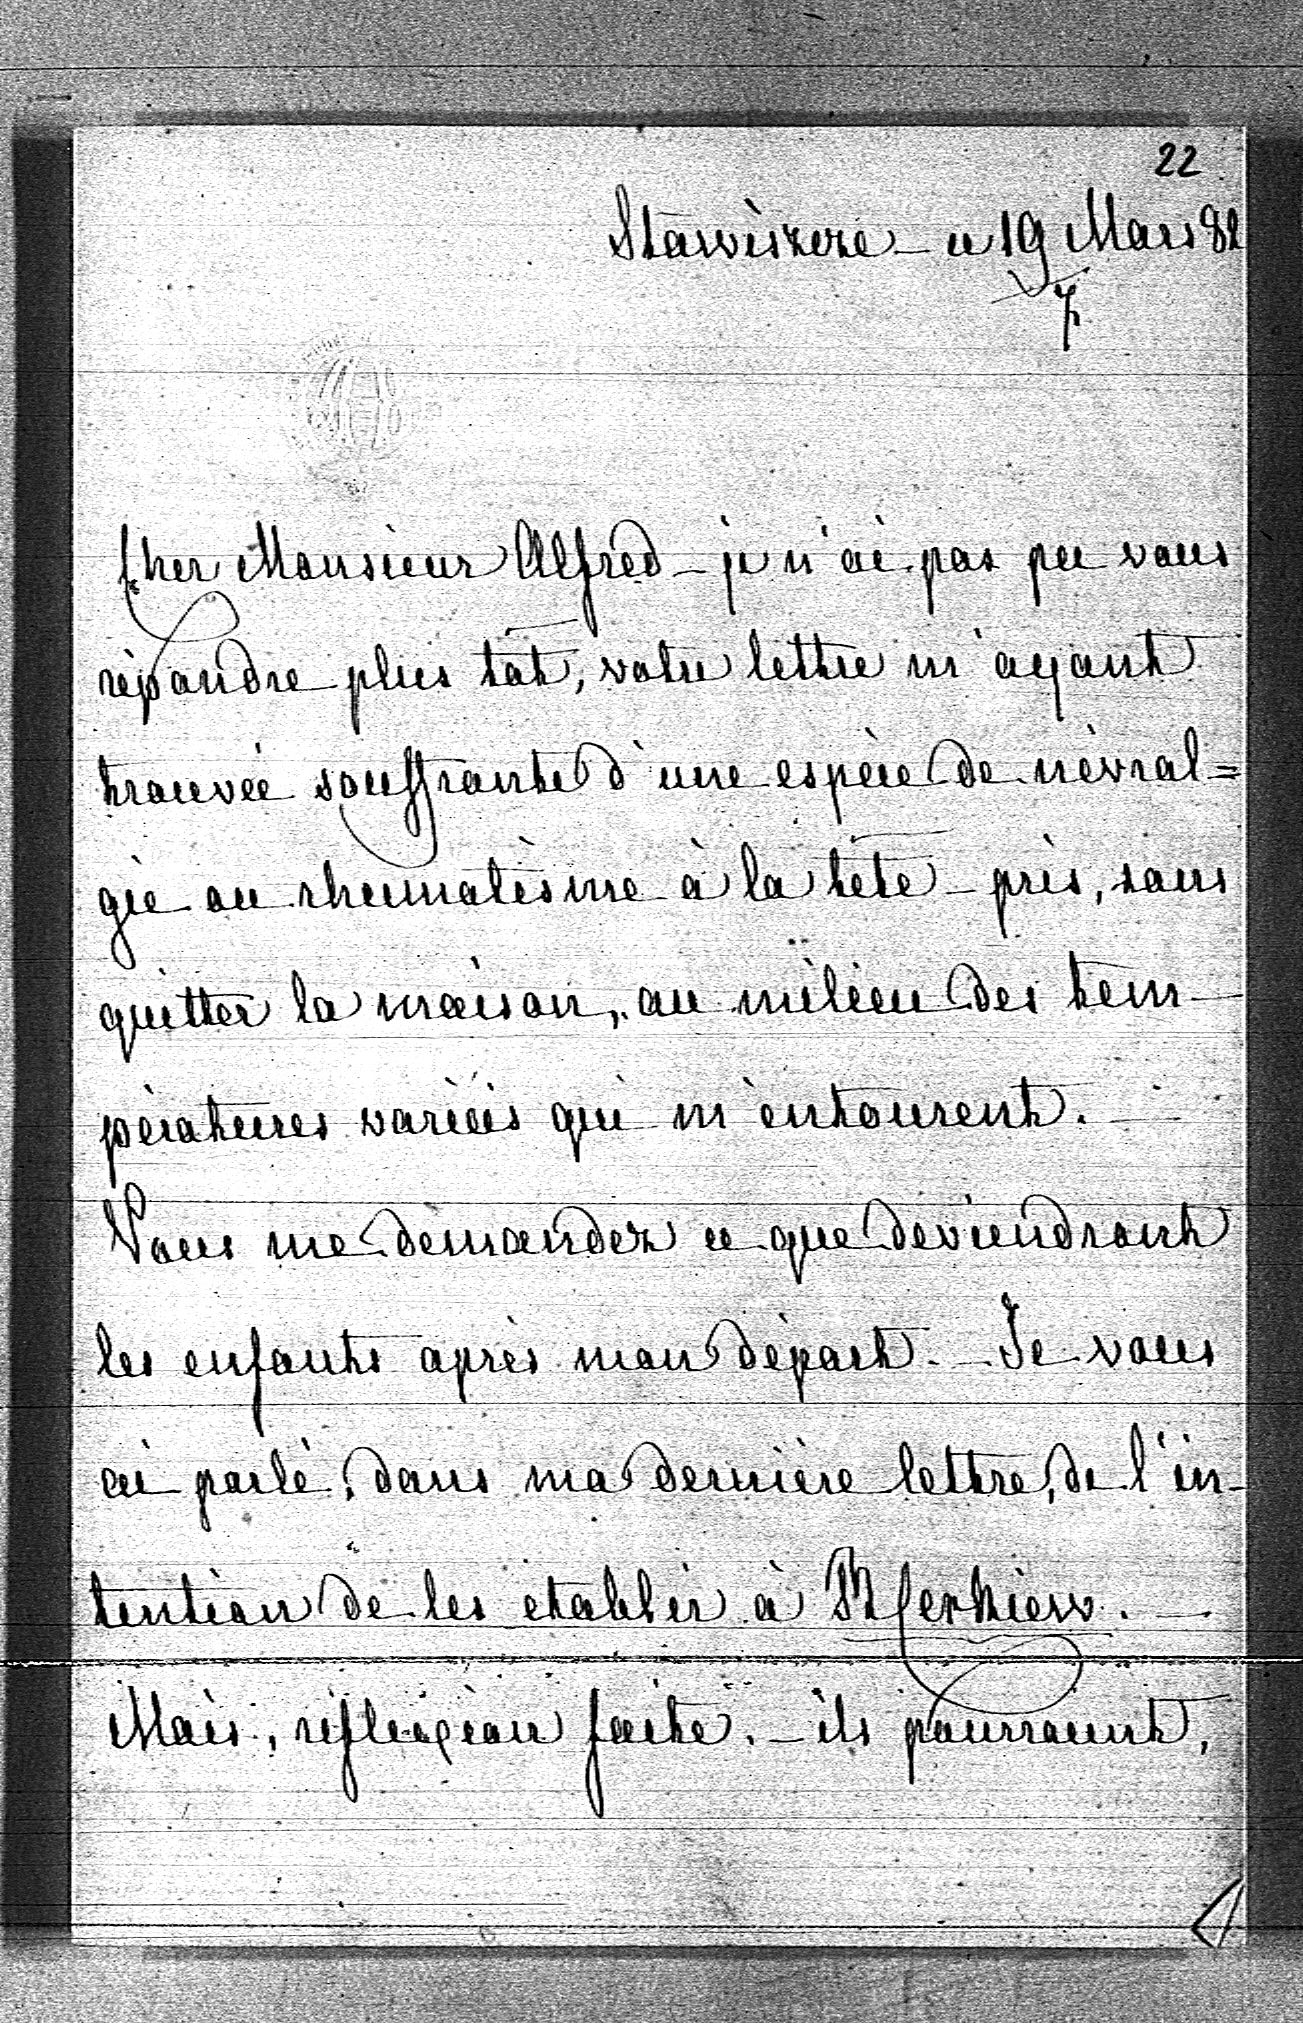 22
Stawiszcze – ce 19 Mars 82
7
Cher Monsieur Alfred – je n'ai pas pu vous
répondre plus tôt, votre lettre m'ayant
trouvée souffrante d'une espèce de névral=
gie ou rhumatisme à la tête – pris, sans
quitter la maison, au milieu des tem-
pératures variées qui m'entourent.
Vous me demandez ce que deviendront
les enfants après mon départ. – Je vous
ai parlé, dans ma dernière lettre, de l'in-
tention de les établir à
Mais, réflexion faite. – ils pourraient,